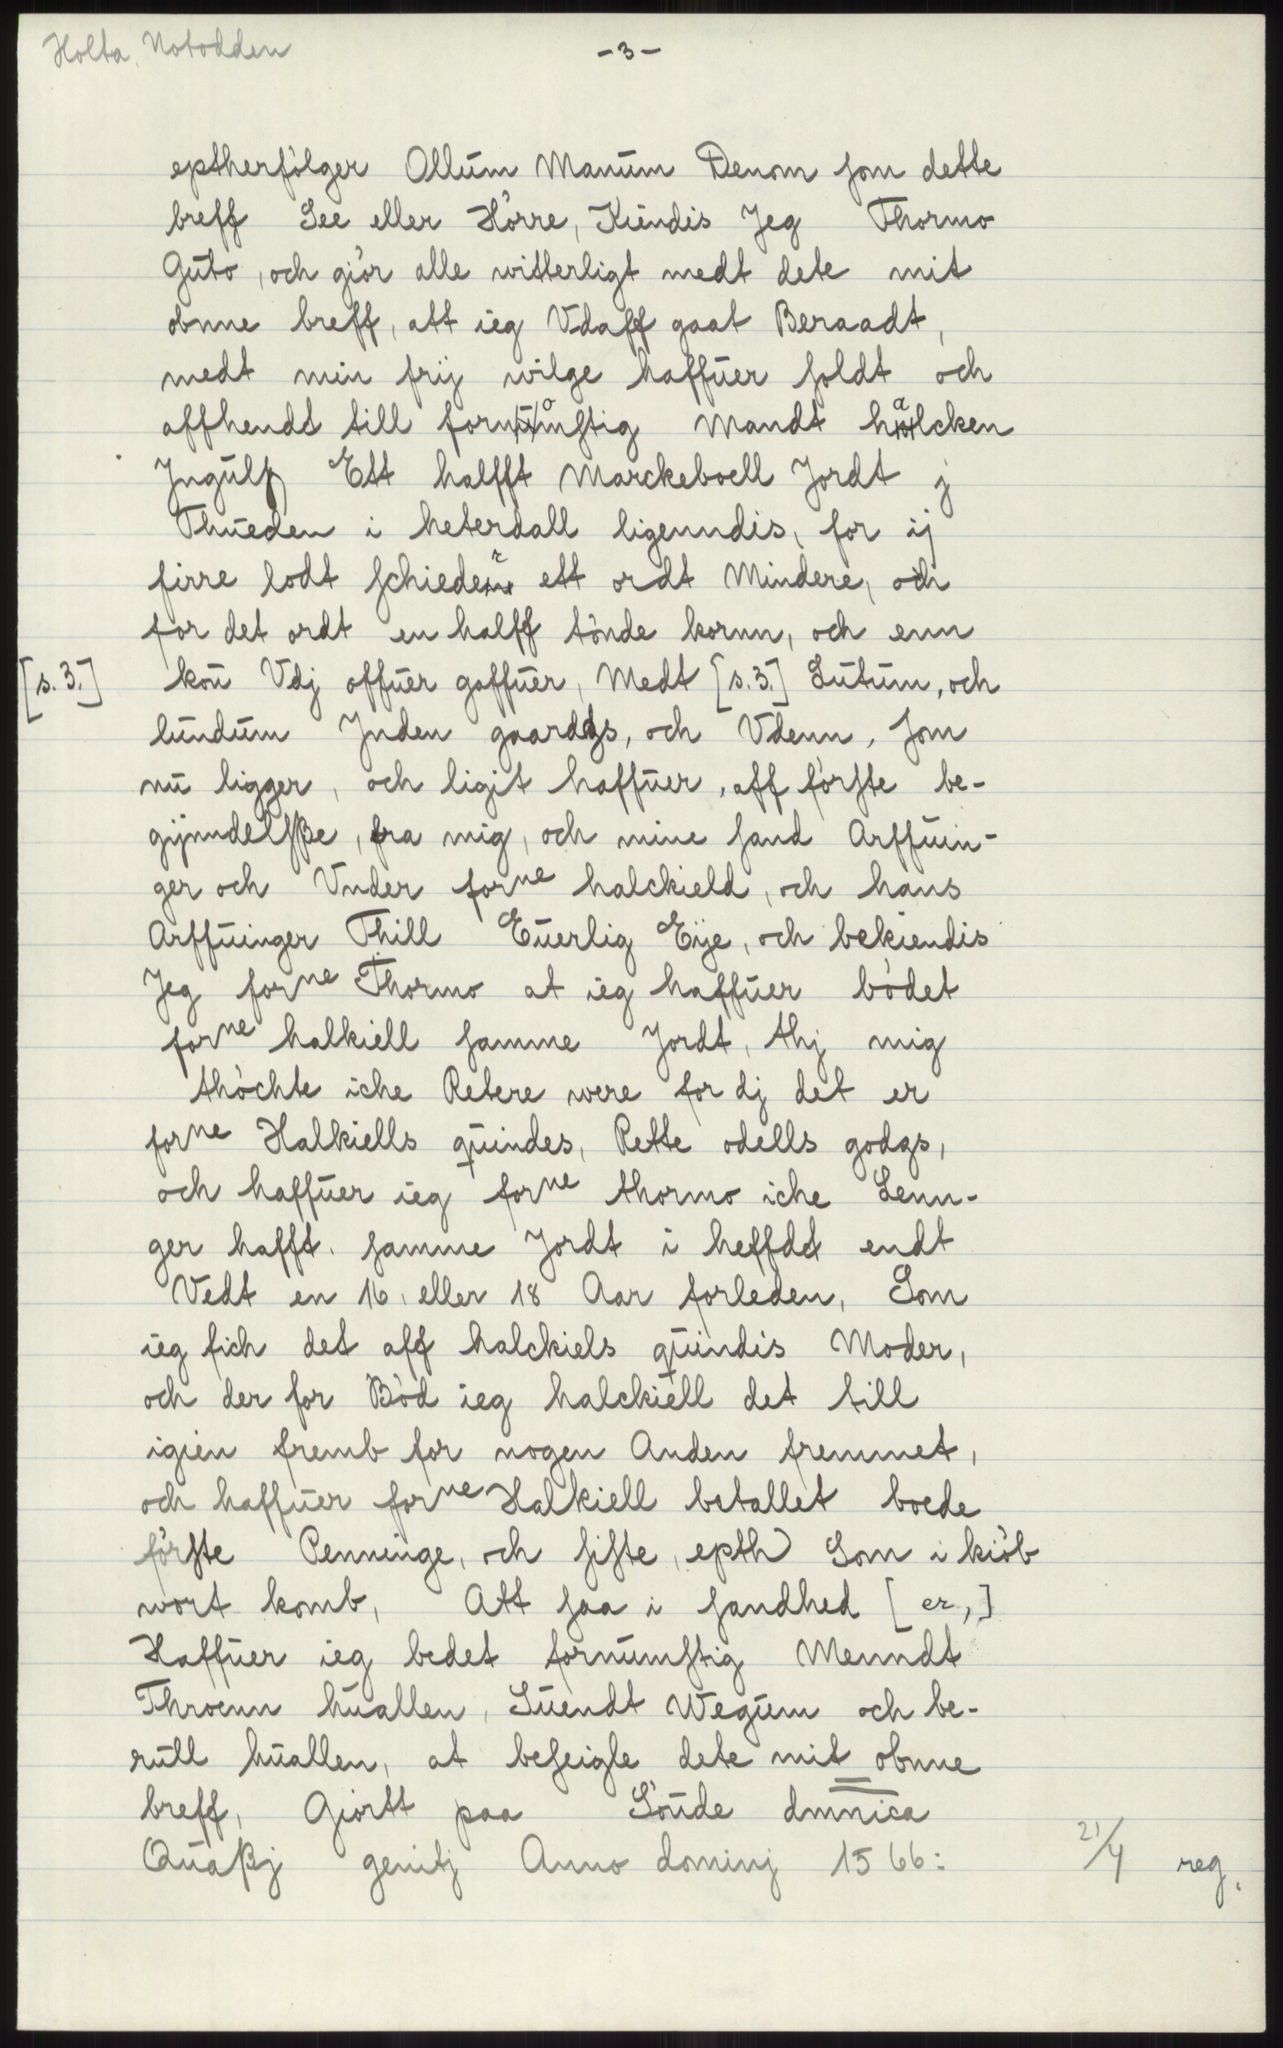 Holta, Notodden
-3-
eptherfölger Ollum Manum Denom som dette
breff See eller Hörre, Kiendis Jeg Thormo
Guto, och giör alle witterligt medt dete mit
obnne breff, att ieg Vdaff gaat Beraadt,
medt min frij wilge haffuer soldt och
affhendt till fornomstig Mandt halcken
Jngulf Ett halfft Marckeboell Jordt j
Thueden i heterdall ligenndis, for ij
firre lodt schieder ett ordt Mindere, och
for det ordt en halff tönde kornn, och enn
[s. 3.] kou Vdj offuer gaffuer, Medt [s. 3.] Lutum, och
lundum Jnden gaardgs, och Vdenn, som
nu ligger, och ligit haffuer, aff förste be-
gynndelsße, fra mig, och mine sand Arffuin-
ger och Vnder forne halckield, och hans
Arffuinger Thill Euerlig Eije, och bekiendis
Jeg forne Thormo at ieg haffuer bödet
forne halkiell samme Jordt, thj mig
thöchte iche Retere were for dj det er
forne Halkiells quindes, Rette odells godgs,
och haffuer ieg forne thormo iche Lenn-
ger hafft samme Jordt i heffdt endt
Vedt en 16, eller 18 Aar forleden, Som
ieg fich det aff halckiels quindis Moder,
och der for Böd ieg halckiell det till
igien fremb for nogen Anden fremmet,
och haffuer forne Halkiell betallet boede
förste Penninge, och siste, epth Som i kiöb
wort komb, Att saa i sandhed [er,]
Haffuer ieg bedet fornumstig Menndt
Throenn huallen, Suendt Wegum och be-
rull huallen, at beseigle dete mit obnne
breff, Giortt paa Söude dmnica
Quaßj genitj Anno dominj 1566:
21/4 reg.